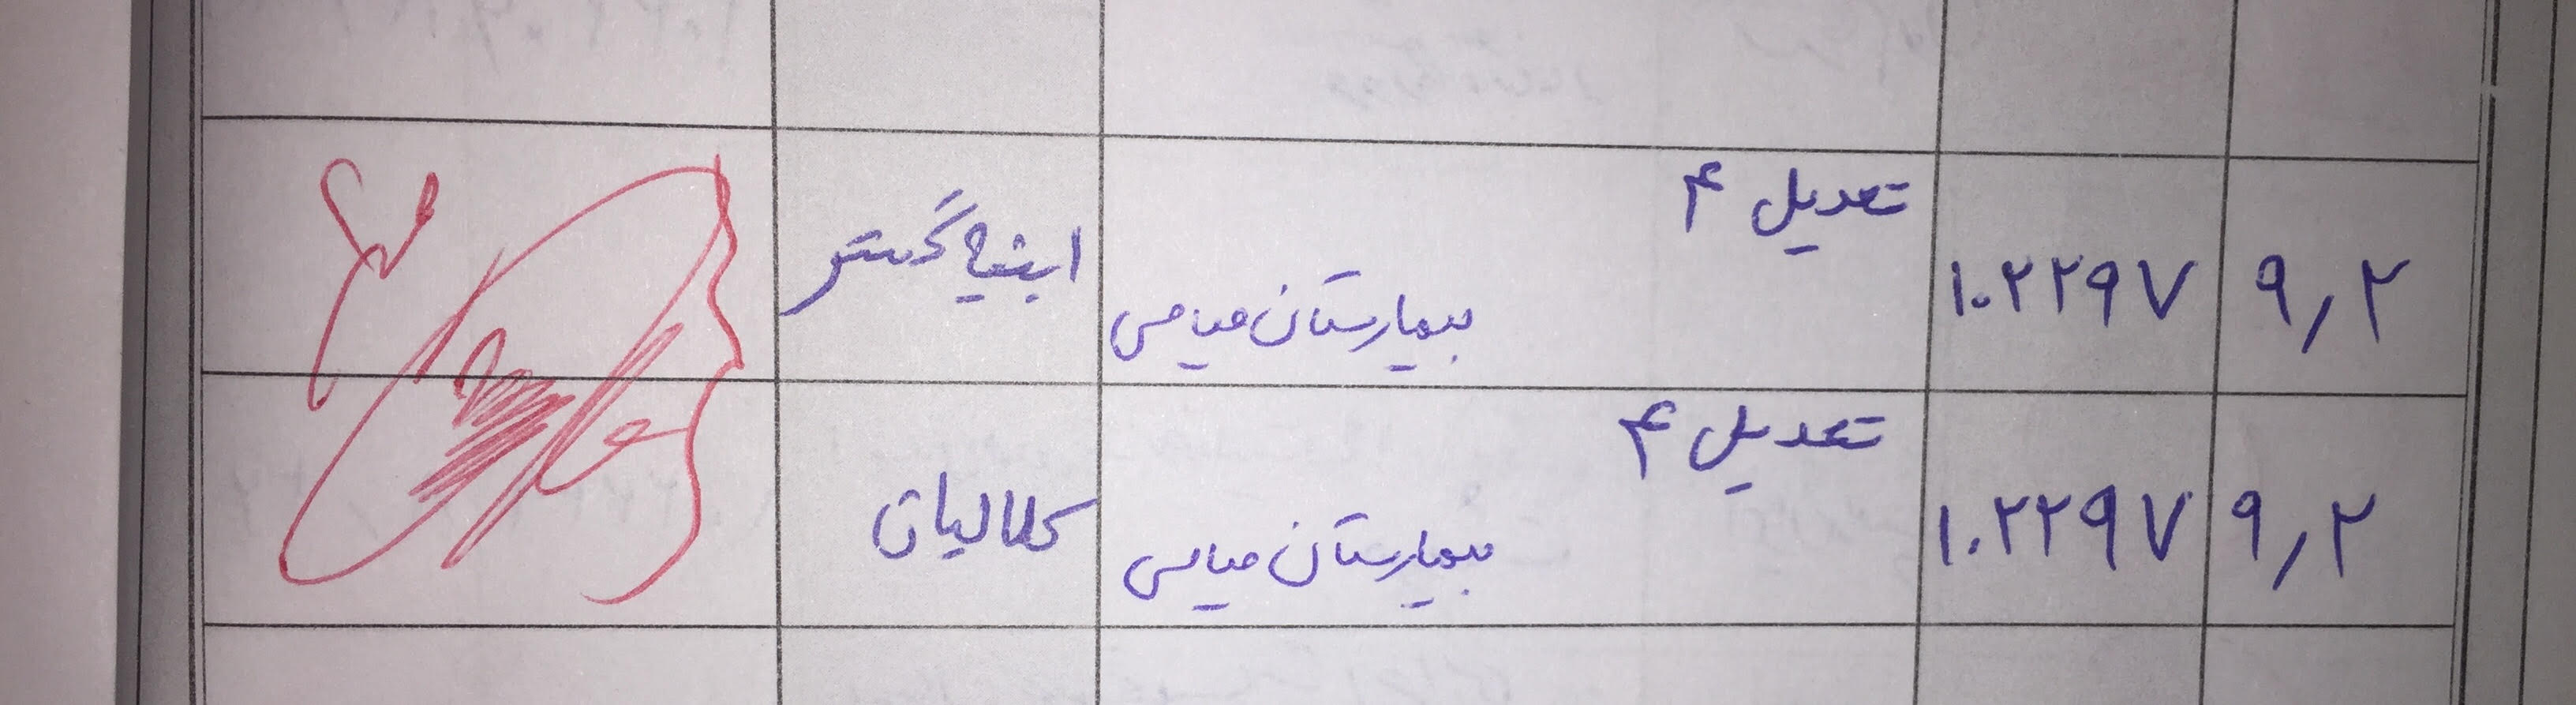 ۹٫۲ ۱۰۲۲۹۷ تعدیل ۴
بیمارستان میامی ابنیه گستر
۹٫۲ ۱۰۲۲۹۷ تعدیل ۴
بیمارستان میامی کلالیان